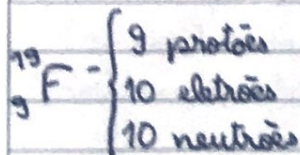 ¹⁹₉F⁻ { 9 protões
10 eletrões
10 neutrões